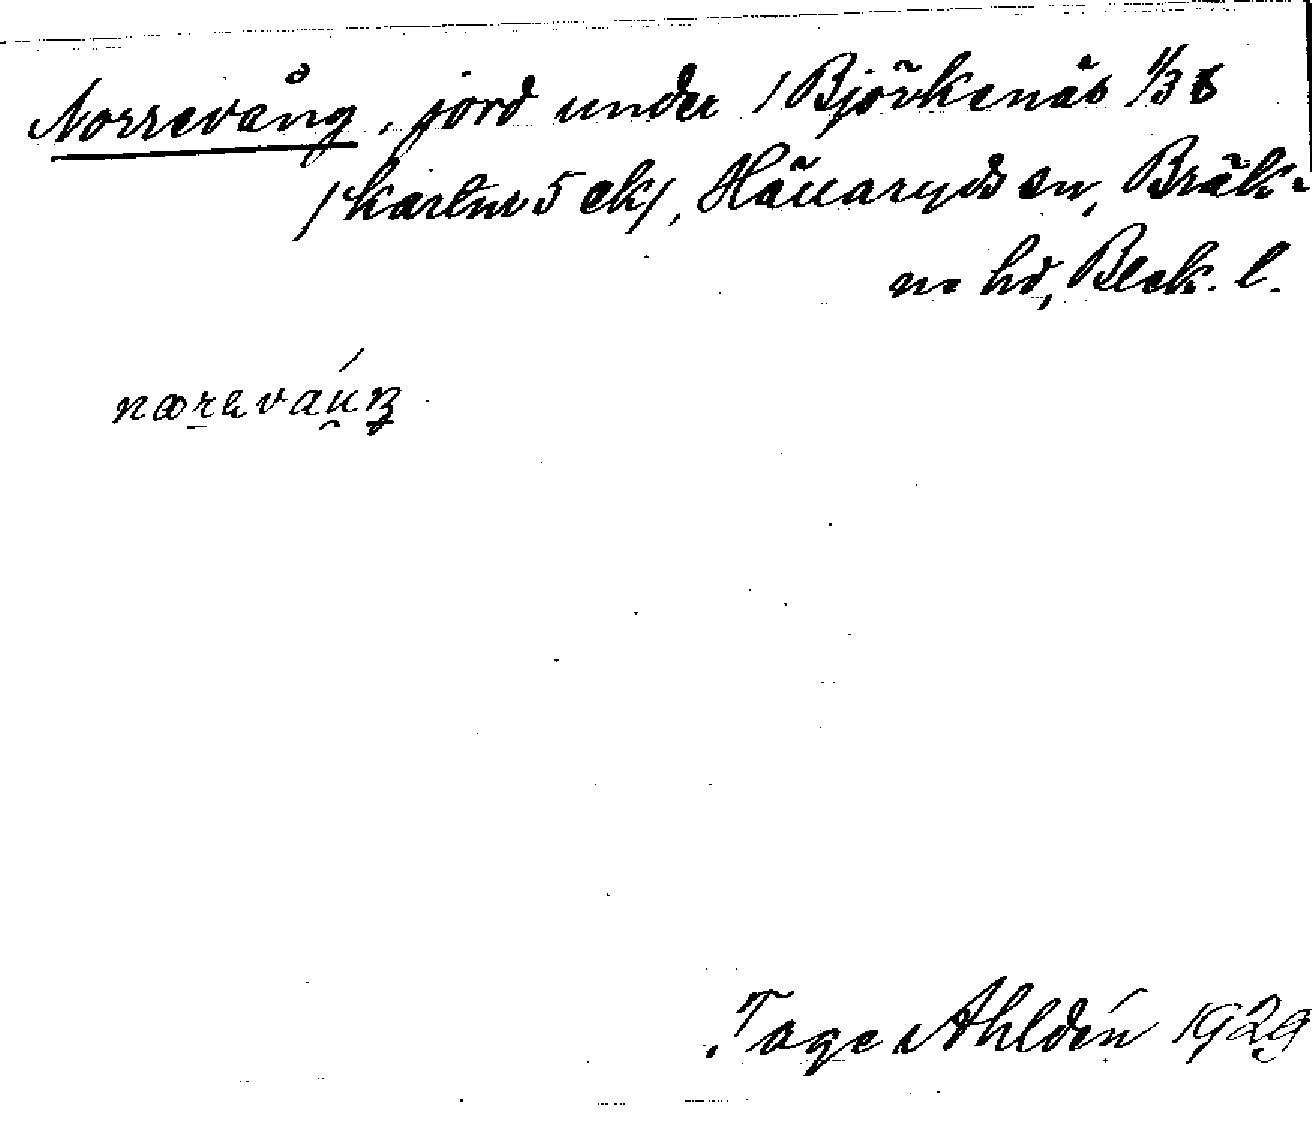 Norrevång, jord under 1 Björkenäs 1/3 6
/kartnr 5 ek/, Hällaryds sn, Bräk-
ne hd, Blek. l.
næreváuŋ
Tage Ahldén 1929